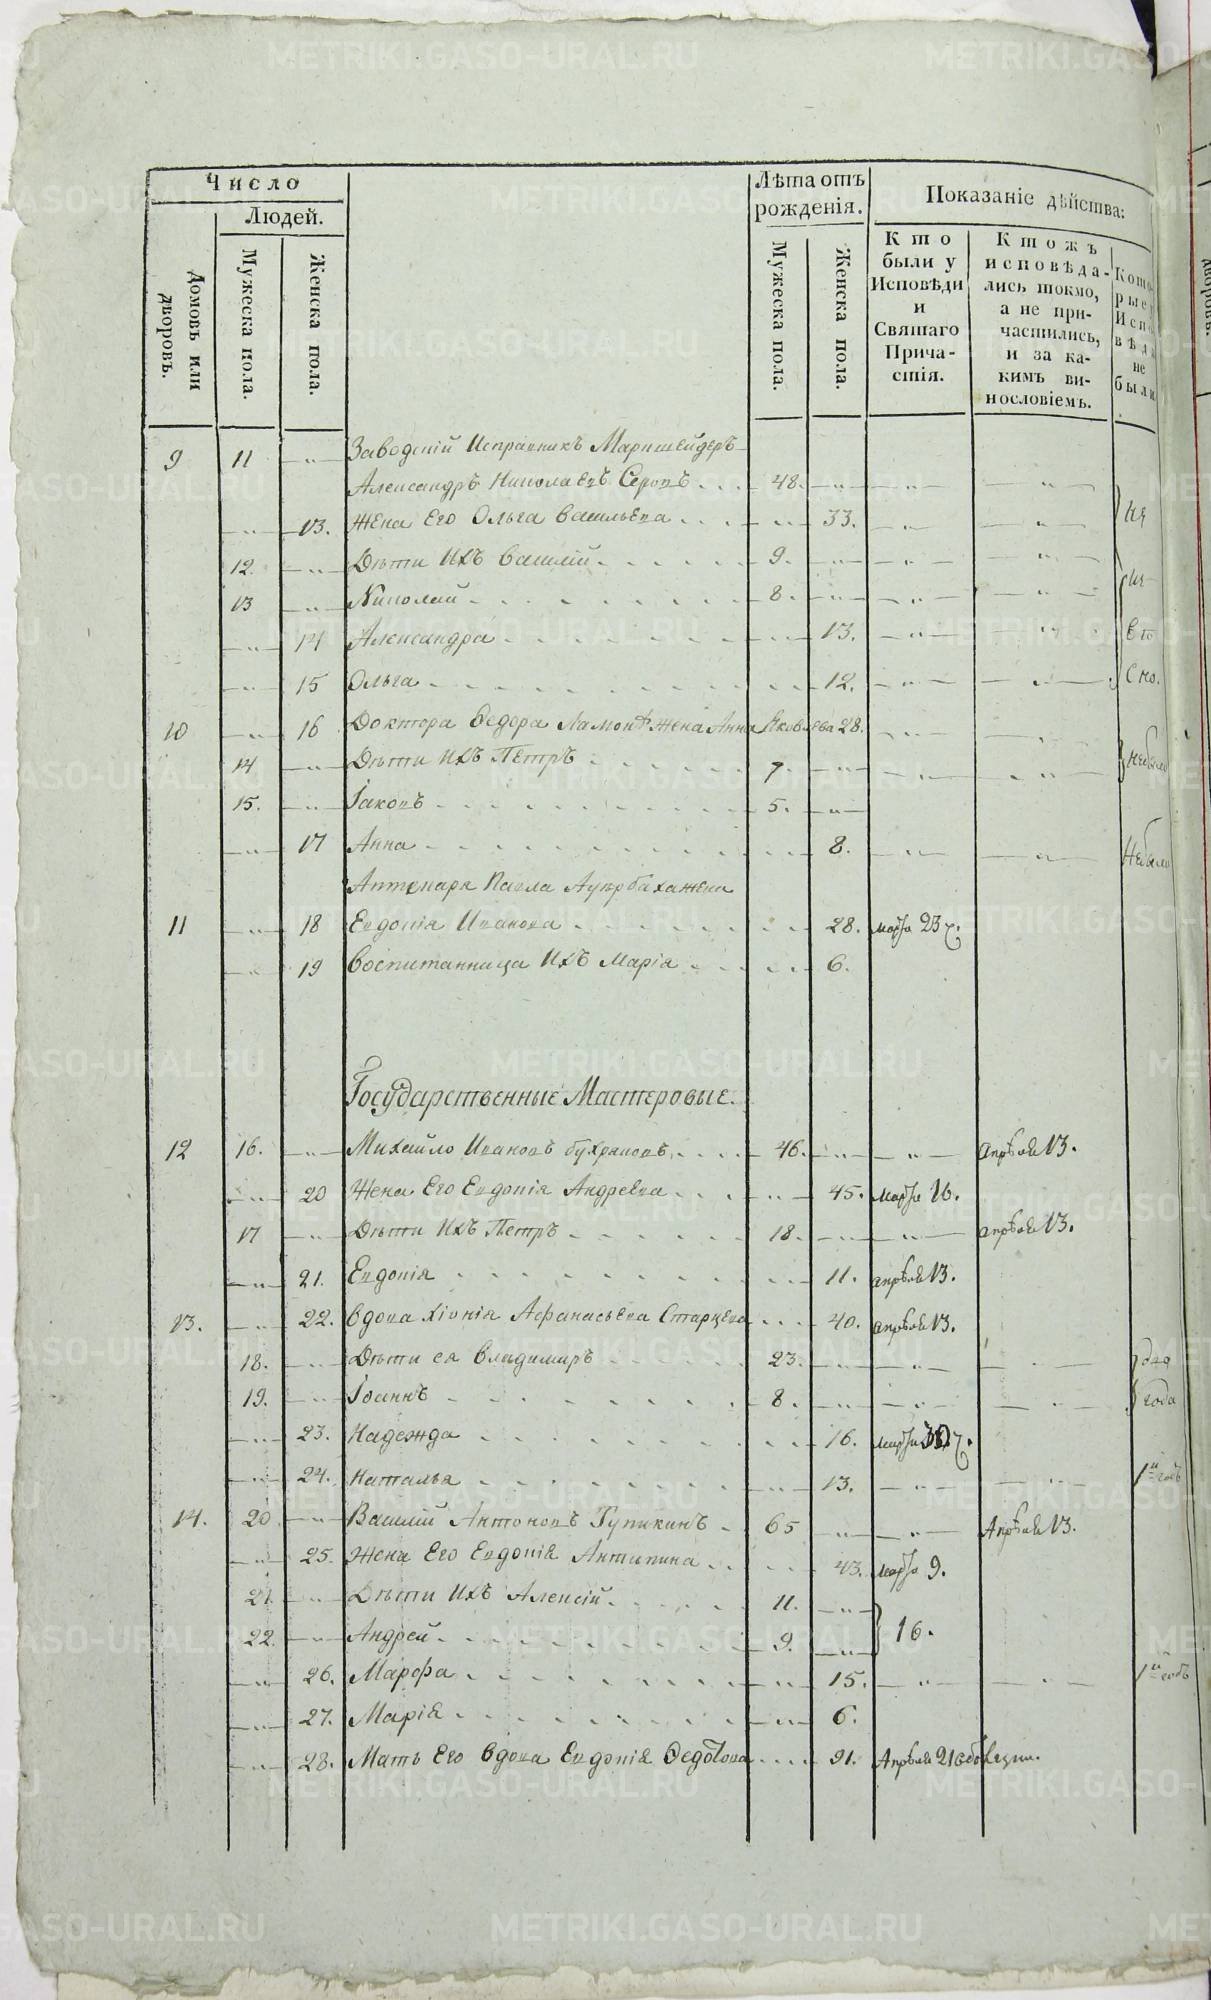 Число
Людей.
Домовъ или дворовъ.
Мужеска пола.
Женска пола.
Лѣта отъ рожденія.
Мужеска пола.
Женска пола.
Показаніе дѣйства:
Кто были у Исповѣди и Святаго Причастія.
Ктожъ исповѣдались токмо, а не причастились, и за какимъ винословіемъ.
Которые у Исповѣди не были.
9 11 Заводскій Исправникъ Маркшейдеръ
Александръ Николаевъ Серовъ 48.
13. Жена Его Ольга Васильева 33.
12. Дѣти Ихъ Василій 9.
13 Николай 8.
14 Александра 13.
15 Ольга 12.
10 16 Доктора Ѳедора Ламони жена Анна Яковлева 28.
14 Дѣти Ихъ Петръ 7.
15. Іаковъ 5.
17 Анна 8.
Аптекаря Павла Ауербаха жена
11 18 Евдокія Иванова 28. марта 23
19 Воспитанница Ихъ Марія 6.
Государственные Мастеровые.
12 16. Михайло Ивановъ 46. апрѣля 13.
20 Жена Его Евдокія Андреева 45. марта 16.
17 Дѣти Ихъ Петръ 18. апрѣля 13.
21. Евдокія 11. апрѣля 13.
13. 22. Вдова Хіонія Афанасьева Старцева 40. апрѣля 13.
18. Дѣти ея Владимиръ 23. два
19. Іоаннъ 8. года
23. Надежда 16. марта 30
24. Наталья 13. 1й годъ
14. 20 Василій Антоновъ Тупикинъ 65 Апрѣля 13.
25. Жена Его Евдокія Антипина 43. марта 9.
21 Дѣти Ихъ Алексій 11.
22. Андрей 9. 16.
26. Марѳа 15. 1й годъ
27. Марія 6.
28. Мать Его Вдова Евдокія Ѳедотова 91. Апрѣля 21
METRIKI.GASO-URAL.RU